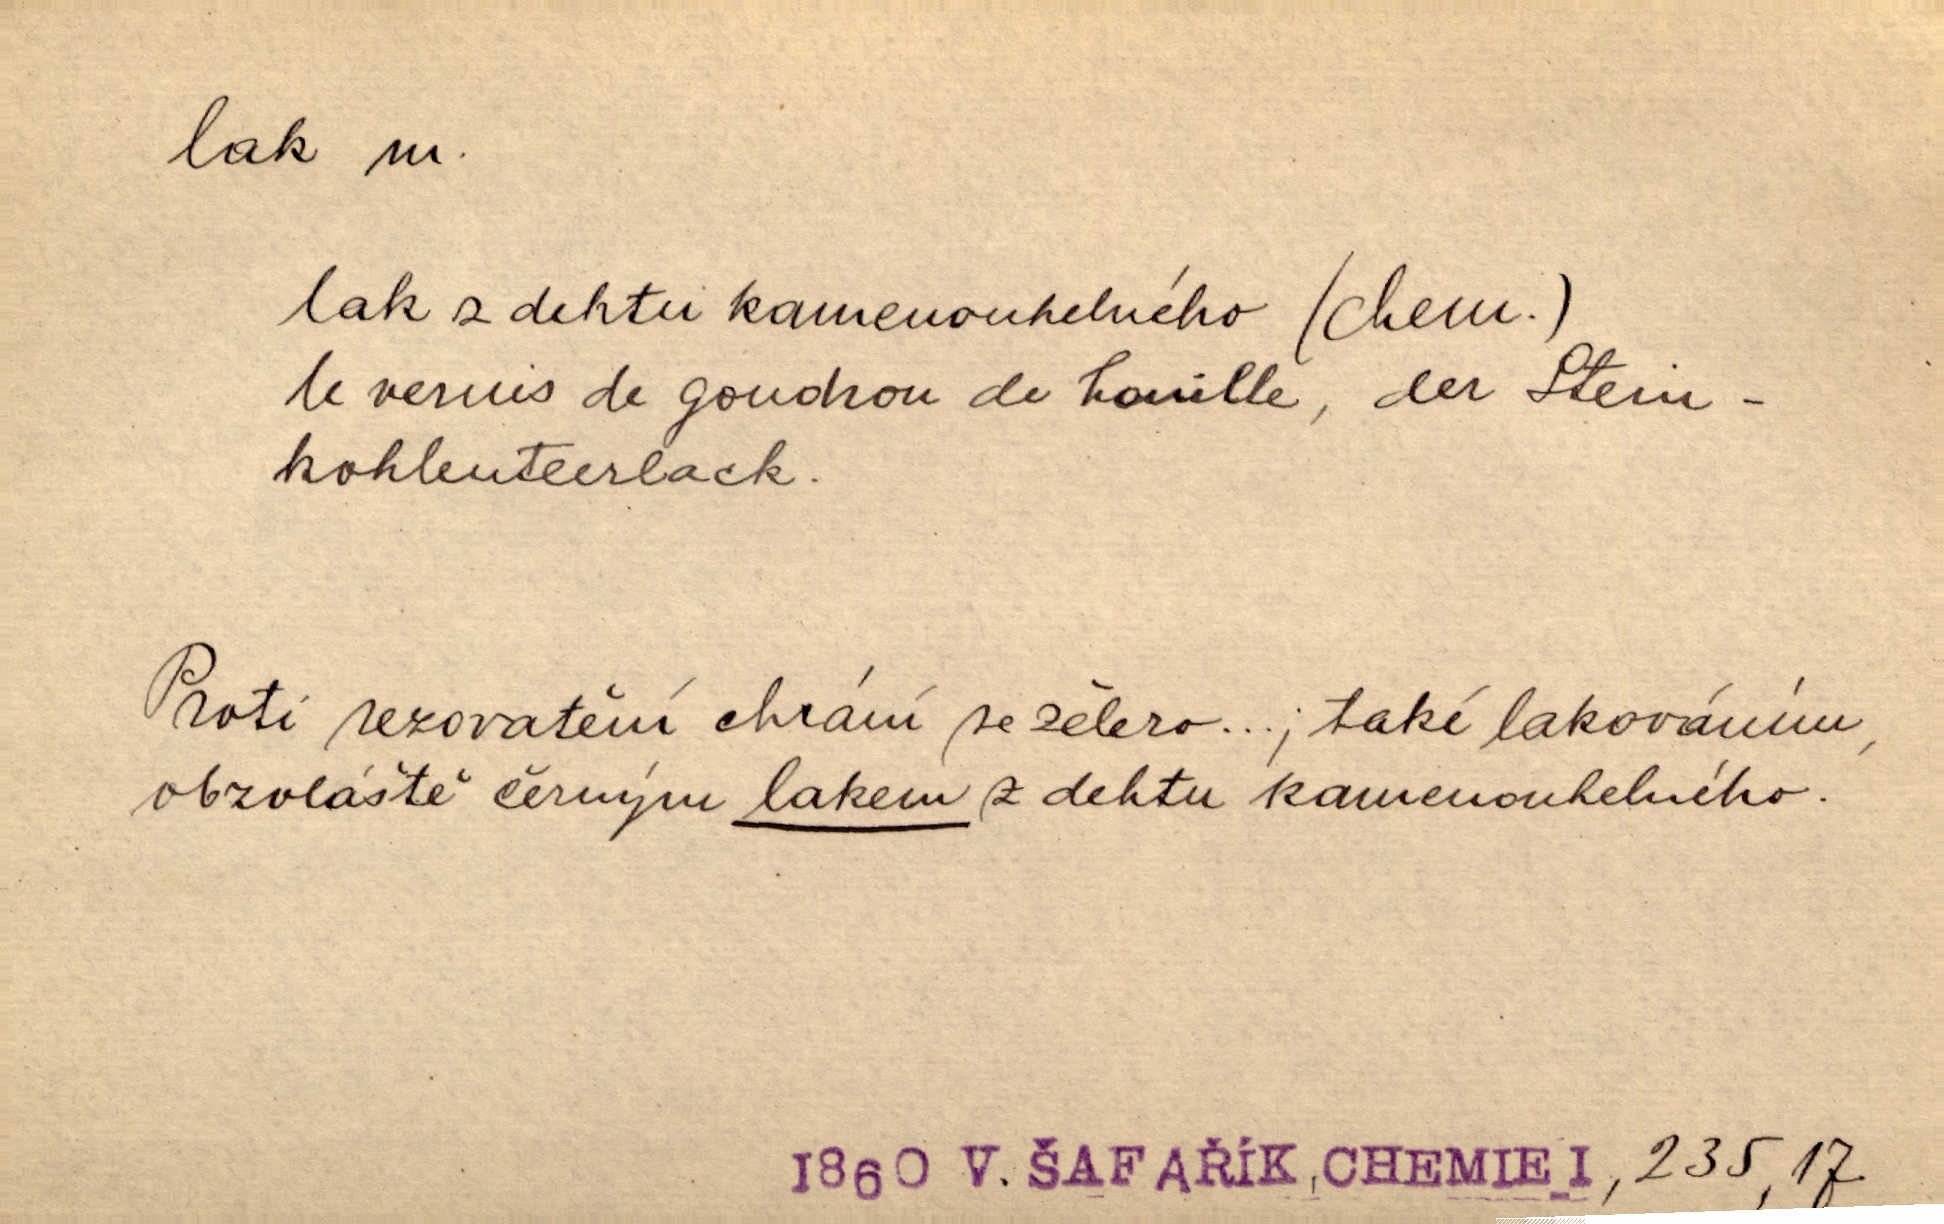 lak m.
lak z dehtu kamenouhelného (chem.)
le vernis de goudron de houille, der Stein-
kohlenteerlack.
Proti rezovatění chrání se želero...; také lakováním,
obzvláště černým lakem z dehtu kamenouhelného.
1860 V. ŠAFAŘÍK, CHEMIE I, 235, 17